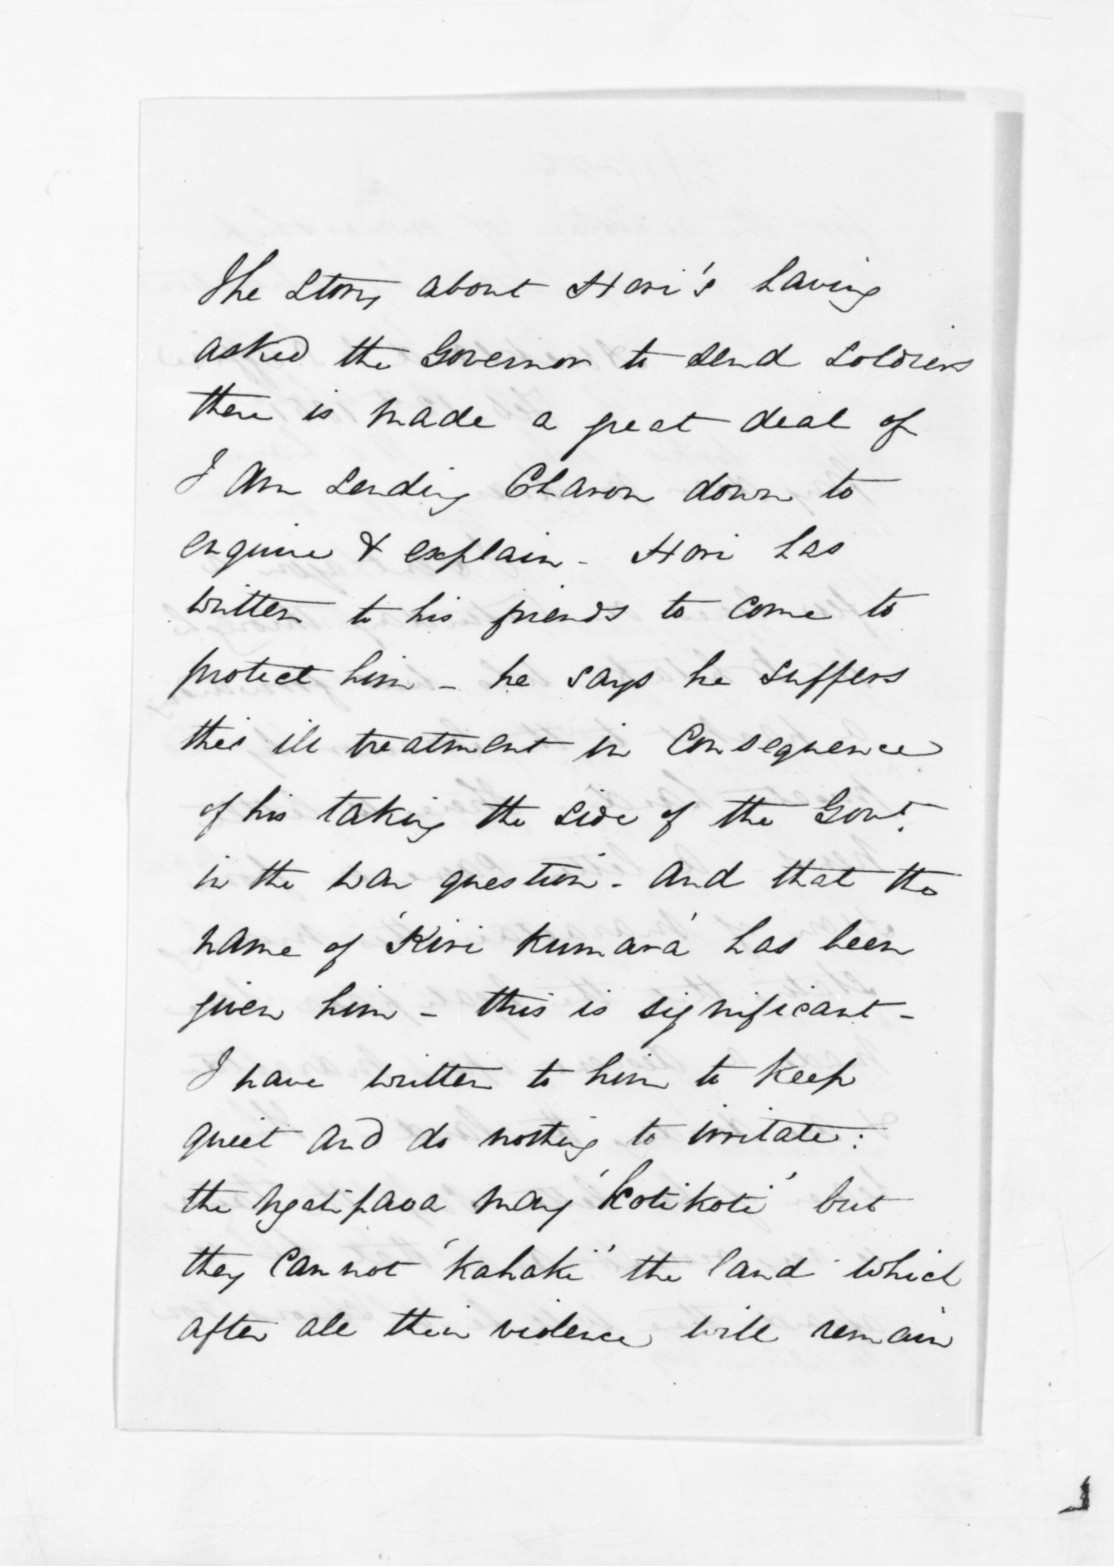 The story about Hori's having
asked the Governor to send soldiers
there is made a great deal of
I am sending Charon down to
enquire & explain - Hori has
written to his friends to come to
protect him - he says he suffers
this ill treatment in consequence
of his taking the side of the Govt.
in the war question - and that the
name of 'Kiri Kumara' has been
given him - this is significant -
I have written to him to keep
quiet and do nothing to irritate:
the Ngatipaoa may 'kotikoti' but
they cannot 'kahaki' the land which
after all their violence will remain